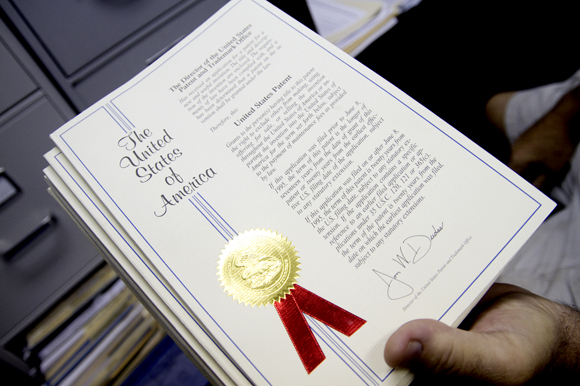 The
United
States
of
America
The Director of the United States
Patent and Trademark Office
Has received an application for a patent for a
new and useful invention. The title and description
of the invention are enclosed. The require-
ments of law have been complied with, and it
has been determined that a patent on the in-
vention shall be granted under the law.
Therefore, this
United States Patent
Grants to the person(s) having title to this patent
the right to exclude others from making, using,
offering for sale, or selling the invention
throughout the United States of America or im-
porting the invention into the United States of
America for the term set forth below, subject
to the payment of maintenance fees as provided
by law.
If this application was filed prior to June 8,
1995, the term of this patent is the longer of
seventeen years from the date of grant of this
patent or twenty years from the earliest effec-
tive U.S. filing date of the application, subject
to any statutory extension.
If this application was filed on or after June 8,
1995, the term of this patent is twenty years from
the U.S. filing date, subject to any statutory ex-
tension. If the application contains a specific
reference to an earlier filed application or ap-
plications under 35 U.S.C. 120, 121 or 365(c),
the term of the patent is twenty years from the
date on which the earliest application was filed,
subject to any statutory extensions.
Jon W. Dudas
Director of the United States Patent and Trademark Office